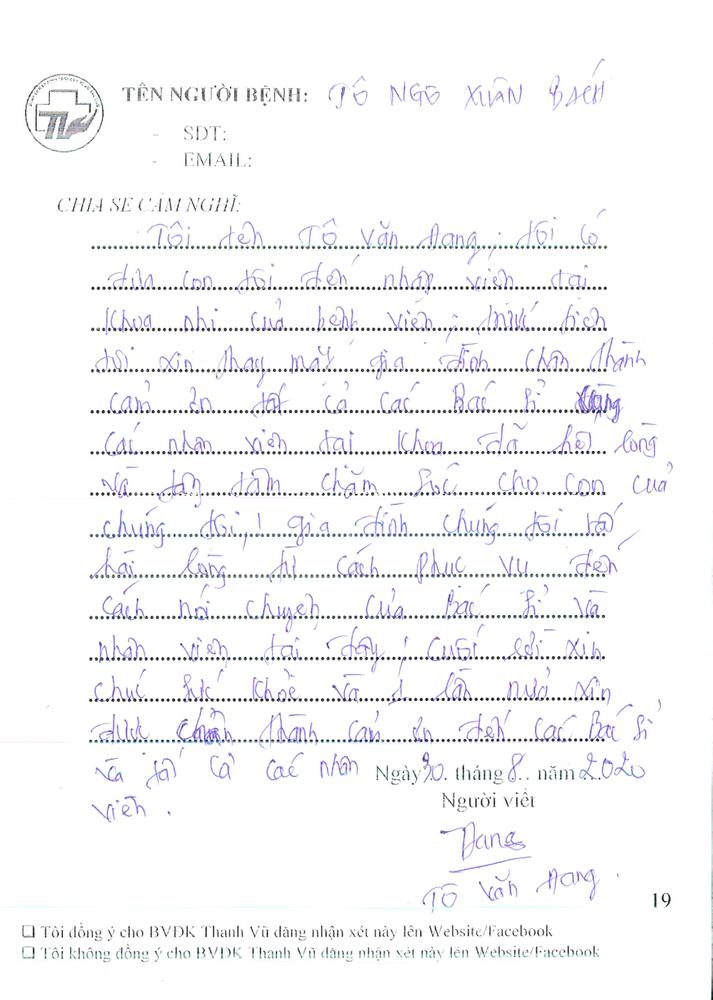 TÊN NGƯỜI BỆNH: TÔ NGÔ XUÂN BÁCH
- SDT:
- EMAIL:
CHIA SẺ CẢM NGHĨ:
Tôi tên Tô Văn Đang, tôi có
đưa con tôi đến nhập viện tại
Khoa nhi của bệnh viện,
tôi xin thay mặt gia đình chân thành
cảm ơn tất cả các Bác sĩ cùng
các nhân viên tại khoa đã hết lòng
và tận tâm chăm sóc cho con của
chúng tôi, ! gia đình chúng tôi rất
hài lòng từ cách phục vụ đến
cách nói chuyện của Bác sĩ và
nhân viên tại đây, cuối lời xin
chúc sức khỏe và 1 lần nữa xin
được chân thành cảm ơn đến các Bác sĩ
và tất cả các nhân
viên.
Ngày 30. tháng 8.. năm 2.020
Người viết
Đang
Tô Văn Đang.
19
☐ Tôi đồng ý cho BVĐK Thanh Vũ đăng nhận xét này lên Website/Facebook
☐ Tôi không đồng ý cho BVĐK Thanh Vũ đăng nhận xét này lên Website/Facebook